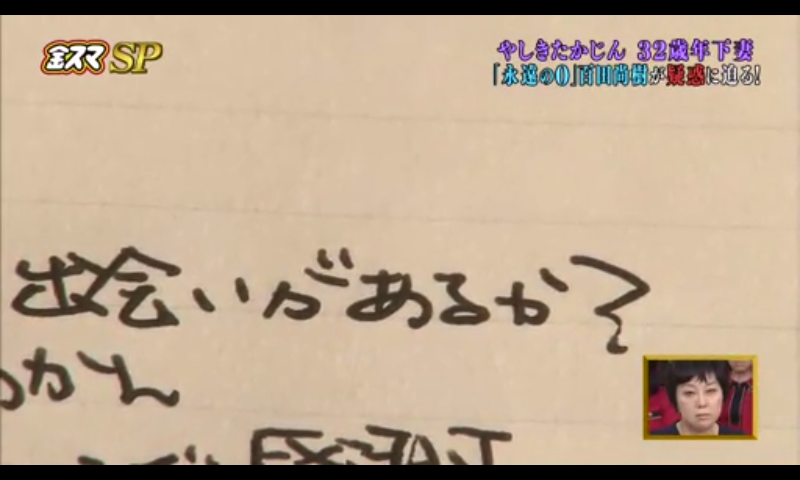 金スマSP
やしきたかじん 32歳年下妻
「永遠の0」百田尚樹が疑惑に迫る!
出会いがあるか?
かん